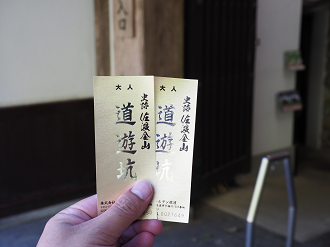 入口
大人
史跡 佐渡金山
道遊坑
大人
史跡 佐渡金山
道遊坑